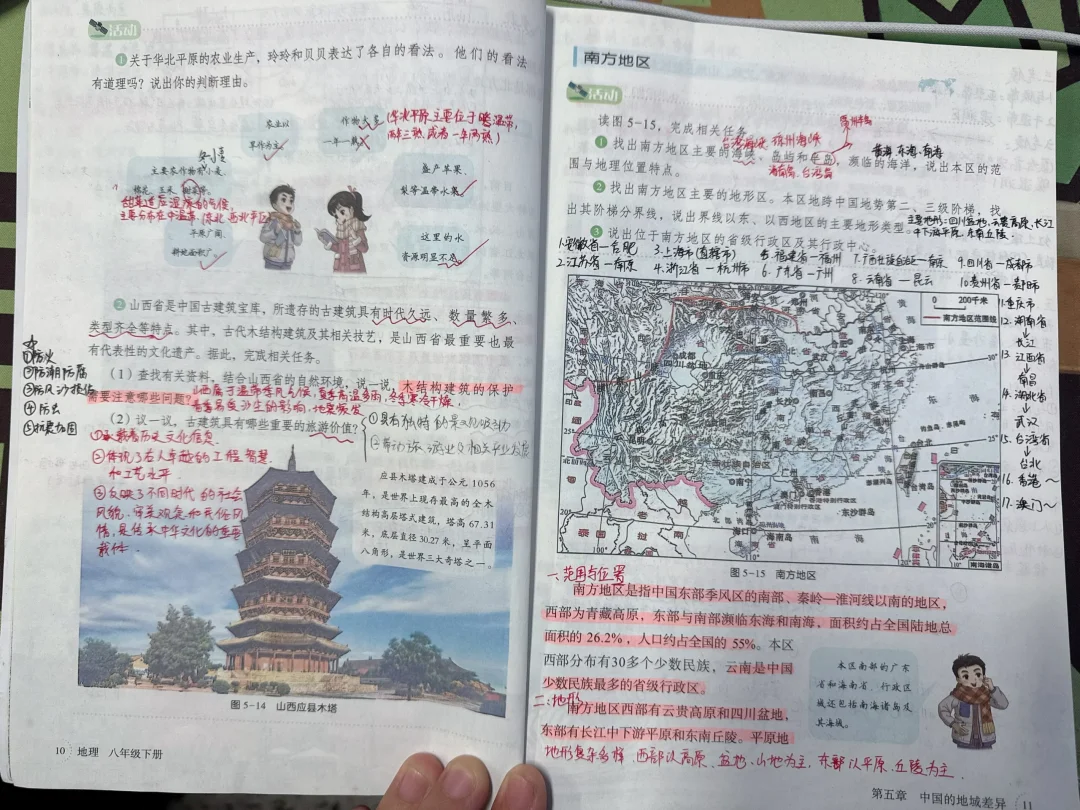 活动
❶关于华北平原的农业生产，玲玲和贝贝表达了各自的看法。他们的看法
有道理吗？说出你的判断理由。
农业以
旱作为主。
作物大多
一年一熟
(华北平原主要位于暖温带，
两年三熟或者一年两熟)
冬小麦
主要农作物有小麦、
棉花、玉米、
甜菜适应湿凉的气候，
主要分布在中温带，东北、西北平原
盛产苹果、
梨等温带水果。
平原广阔，
耕地面积广。
这里的水
资源明显不足
❷山西省是中国古建筑宝库，所遗存的古建筑具有时代久远、数量繁多、
类型齐全等特点。其中，古代木结构建筑及其相关技艺，是山西省最重要也最
有代表性的文化遗产。据此，完成相关任务。
（1）查找有关资料，结合山西省的自然环境，说一说，木结构建筑的保护
需要注意哪些问题？
山西属于温带季风气候，夏季高温多雨，冬季寒冷干燥，
春季易受沙尘的影响，地震频发
①防火
②防潮防腐
③防风沙侵蚀
④防虫
⑤抗震加固
（2）议一议，古建筑具有哪些重要的旅游价值？
①具有独特的景观吸引力
①承载着历史文化信息
②体现了古人卓越的工程智慧
和工艺水平
③反映了不同时代的社会
风貌、审美观念和民俗风
情，是传承中华文化的重要
载体.
应县木塔建成于公元1056
年，是世界上现存最高的全木
结构高层塔式建筑，塔高67.31
米，底层直径30.27米，呈平面
八角形，是世界三大奇塔之一。
图5-14 山西应县木塔
10 地理 八年级下册
南方地区
活动
读图5-15，完成相关任务。
台湾海峡 琼州海峡
雷州半岛
❶找出南方地区主要的海峡、岛屿和半岛，濒临的海洋，说出本区的范
黄海 东海 南海
围与地理位置特点。
海南岛、台湾岛
❷找出南方地区主要的地形区。本区地跨中国地势第二、三级阶梯，找
出其阶梯分界线，说出界线以东、以西地区的主要地形类型。
主要地形：四川盆地、云贵高原、长江
中下游平原、东南丘陵。
❸说出位于南方地区的省级行政区及其行政中心。
1.安徽省—合肥 3.上海市(直辖市) 5.福建省—福州 7.广西壮族自治区—南宁 9.四川省—成都市
2.江苏省—南京 4.浙江省—杭州市 6.广东省—广州 8.云南省—昆云 10.贵州省—贵阳市
11.重庆市
12.湖南省
长江
13.江西省
南昌
14.湖北省
武汉
15.台湾省
台北
16.香港~
17.澳门~
0 200千米
南方地区范围线
成都
四川盆地
长沙
南宁
广州
海口
海南岛
台北
台湾岛
东沙群岛
东海
南海
越南
老挝
泰国
南海诸岛
图5-15 南方地区
一、范围与位置
南方地区是指中国东部季风区的南部、秦岭—淮河线以南的地区，
西部为青藏高原，东部与南部濒临东海和南海，面积约占全国陆地总
面积的26.2%，人口约占全国的55%。本区
西部分布有30多个少数民族，云南是中国
少数民族最多的省级行政区。
本区南部的广东
省和海南省，行政区
域还包括南海诸岛及
其海域。
二、地形
南方地区西部有云贵高原和四川盆地，
东部有长江中下游平原和东南丘陵。平原地
地形复杂多样，西部以高原、盆地、山地为主，东部以平原、丘陵为主.
第五章 中国的地域差异 11